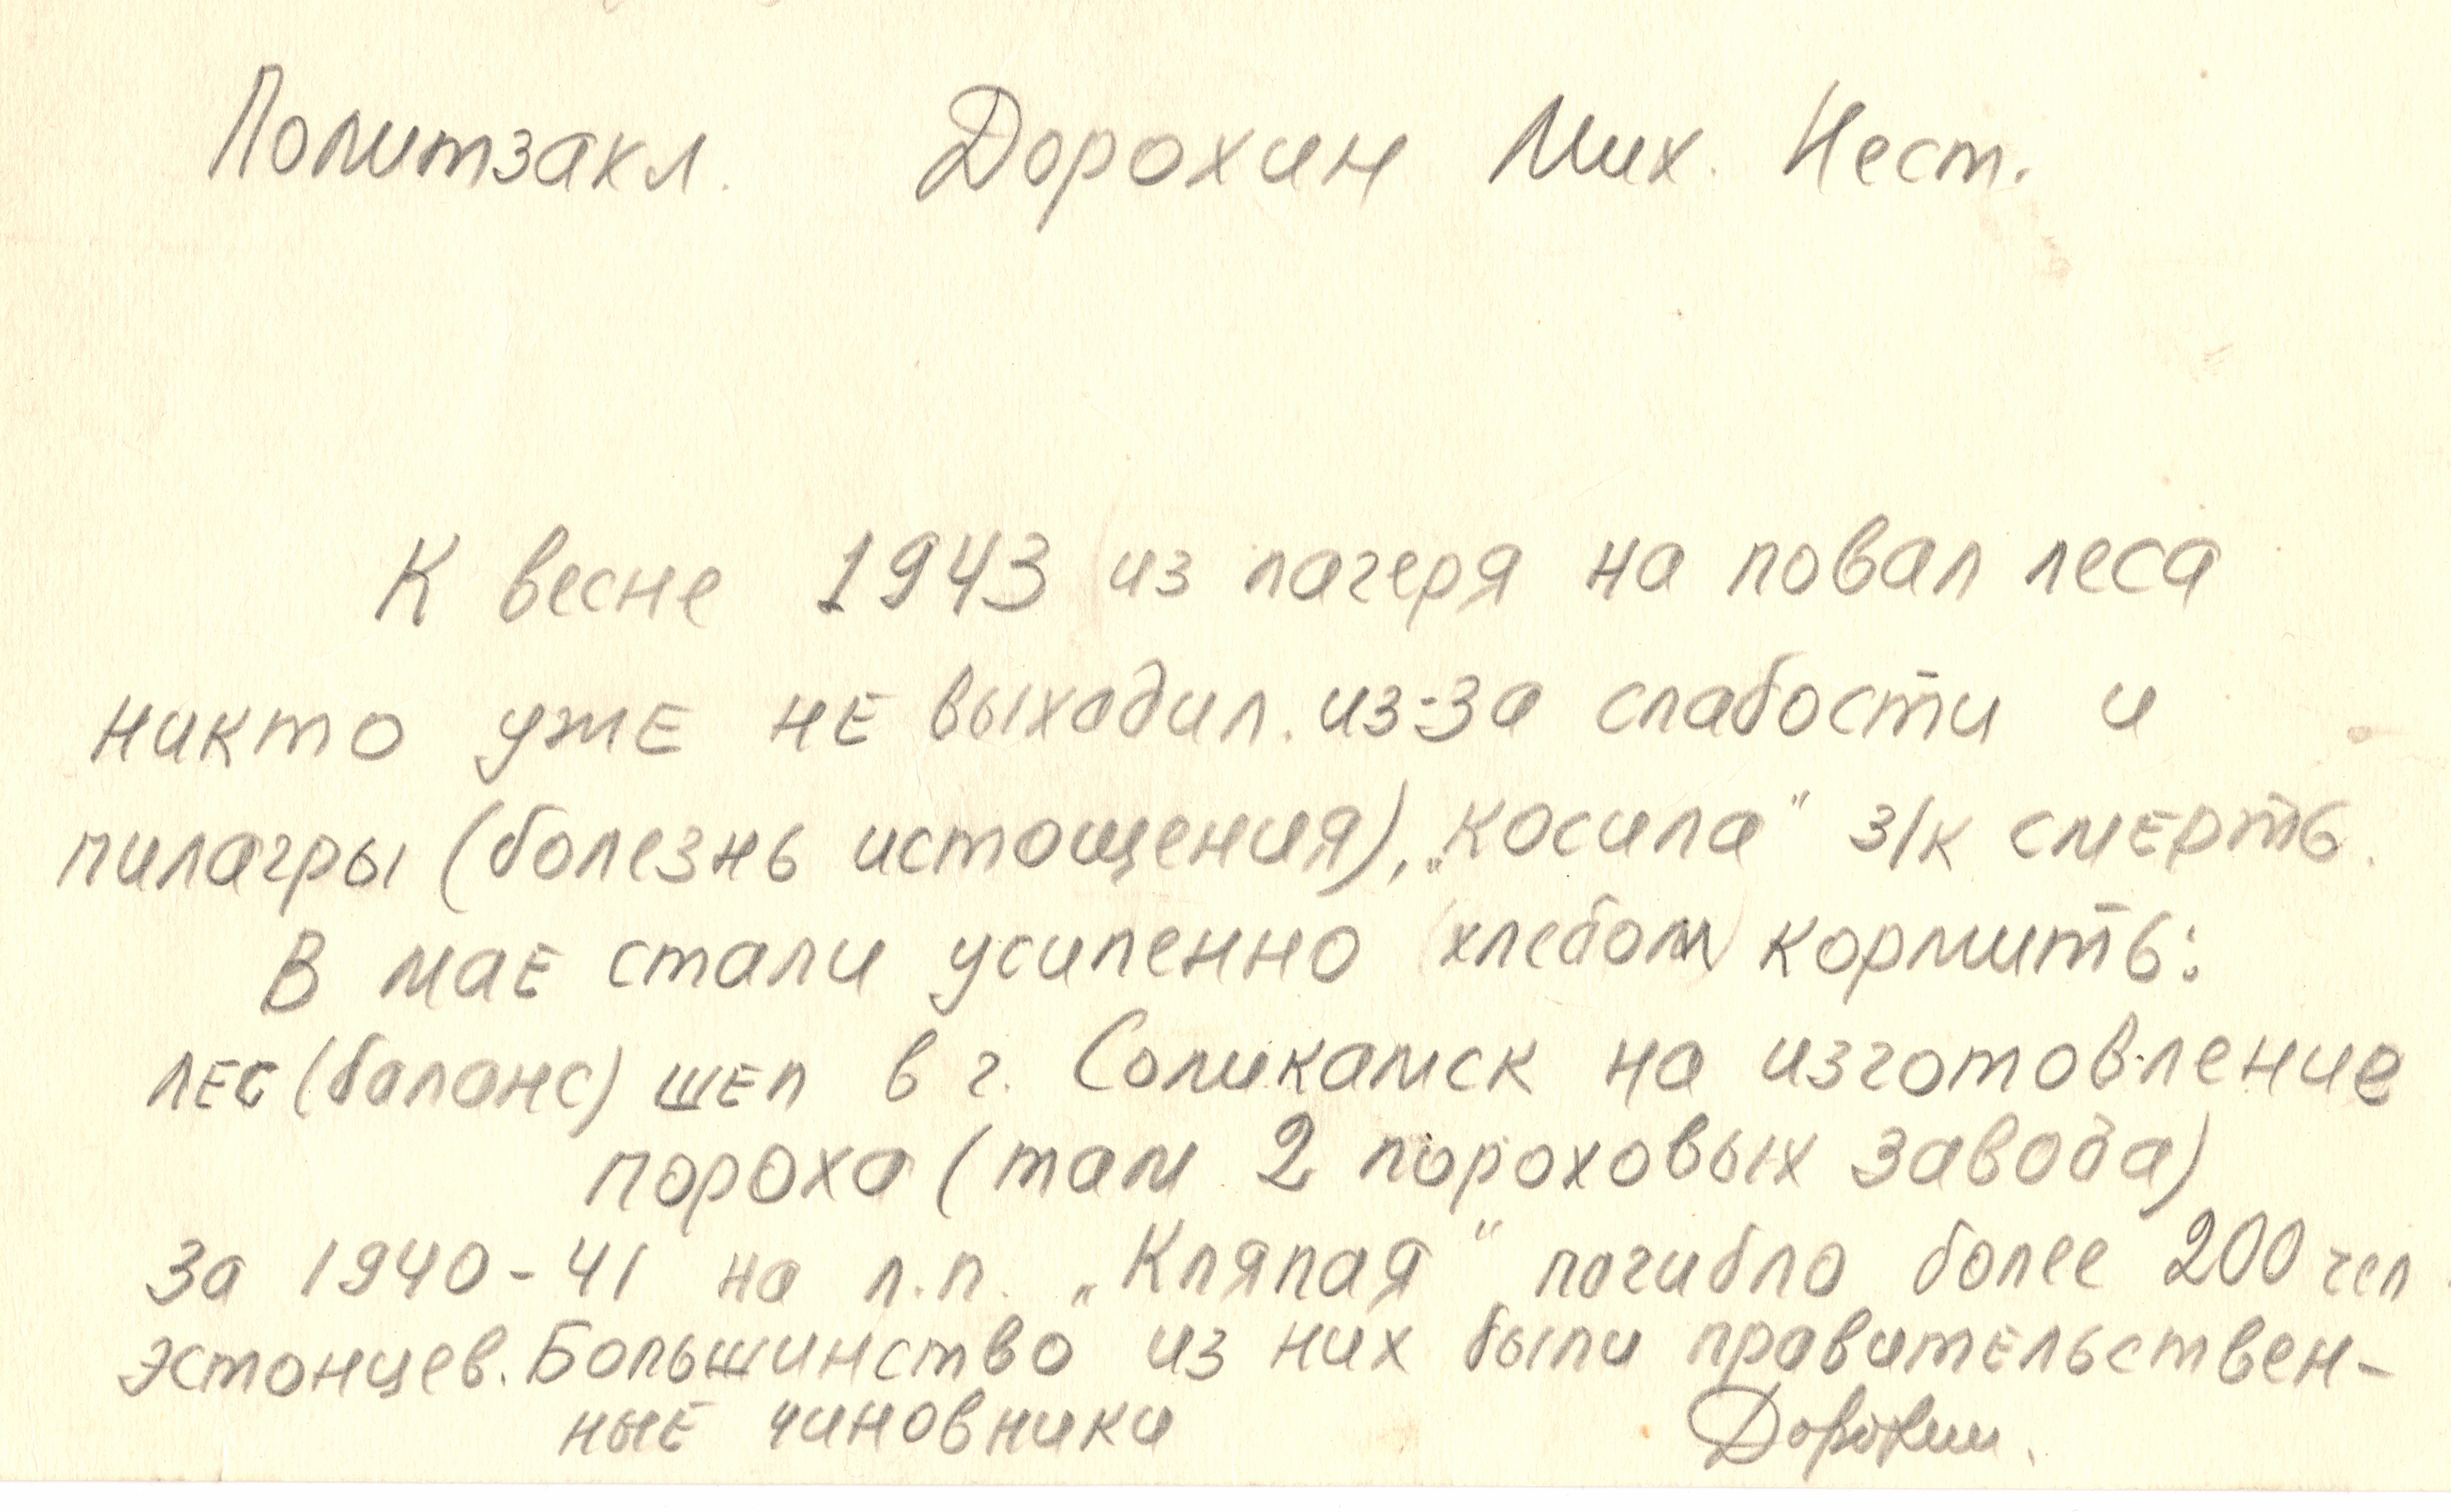 Политзакл. Дорохин Мих. Нест.
К весне 1943 из лагеря на повал леса
никто уже не выходил. из-за слабости и
пилагры (болезнь истощения), „косила" з/к смерть.
В мае стали усиленно (хлебом) кормить:
лес (баланс) шел в г. Соликамск на изготовление
пороха (там 2 пороховых завода)
За 1940-41 на л.п. „Кляпая" погибло более 200 чел.
эстонцев. Большинство из них были правительствен-
ные чиновники Дорохин.